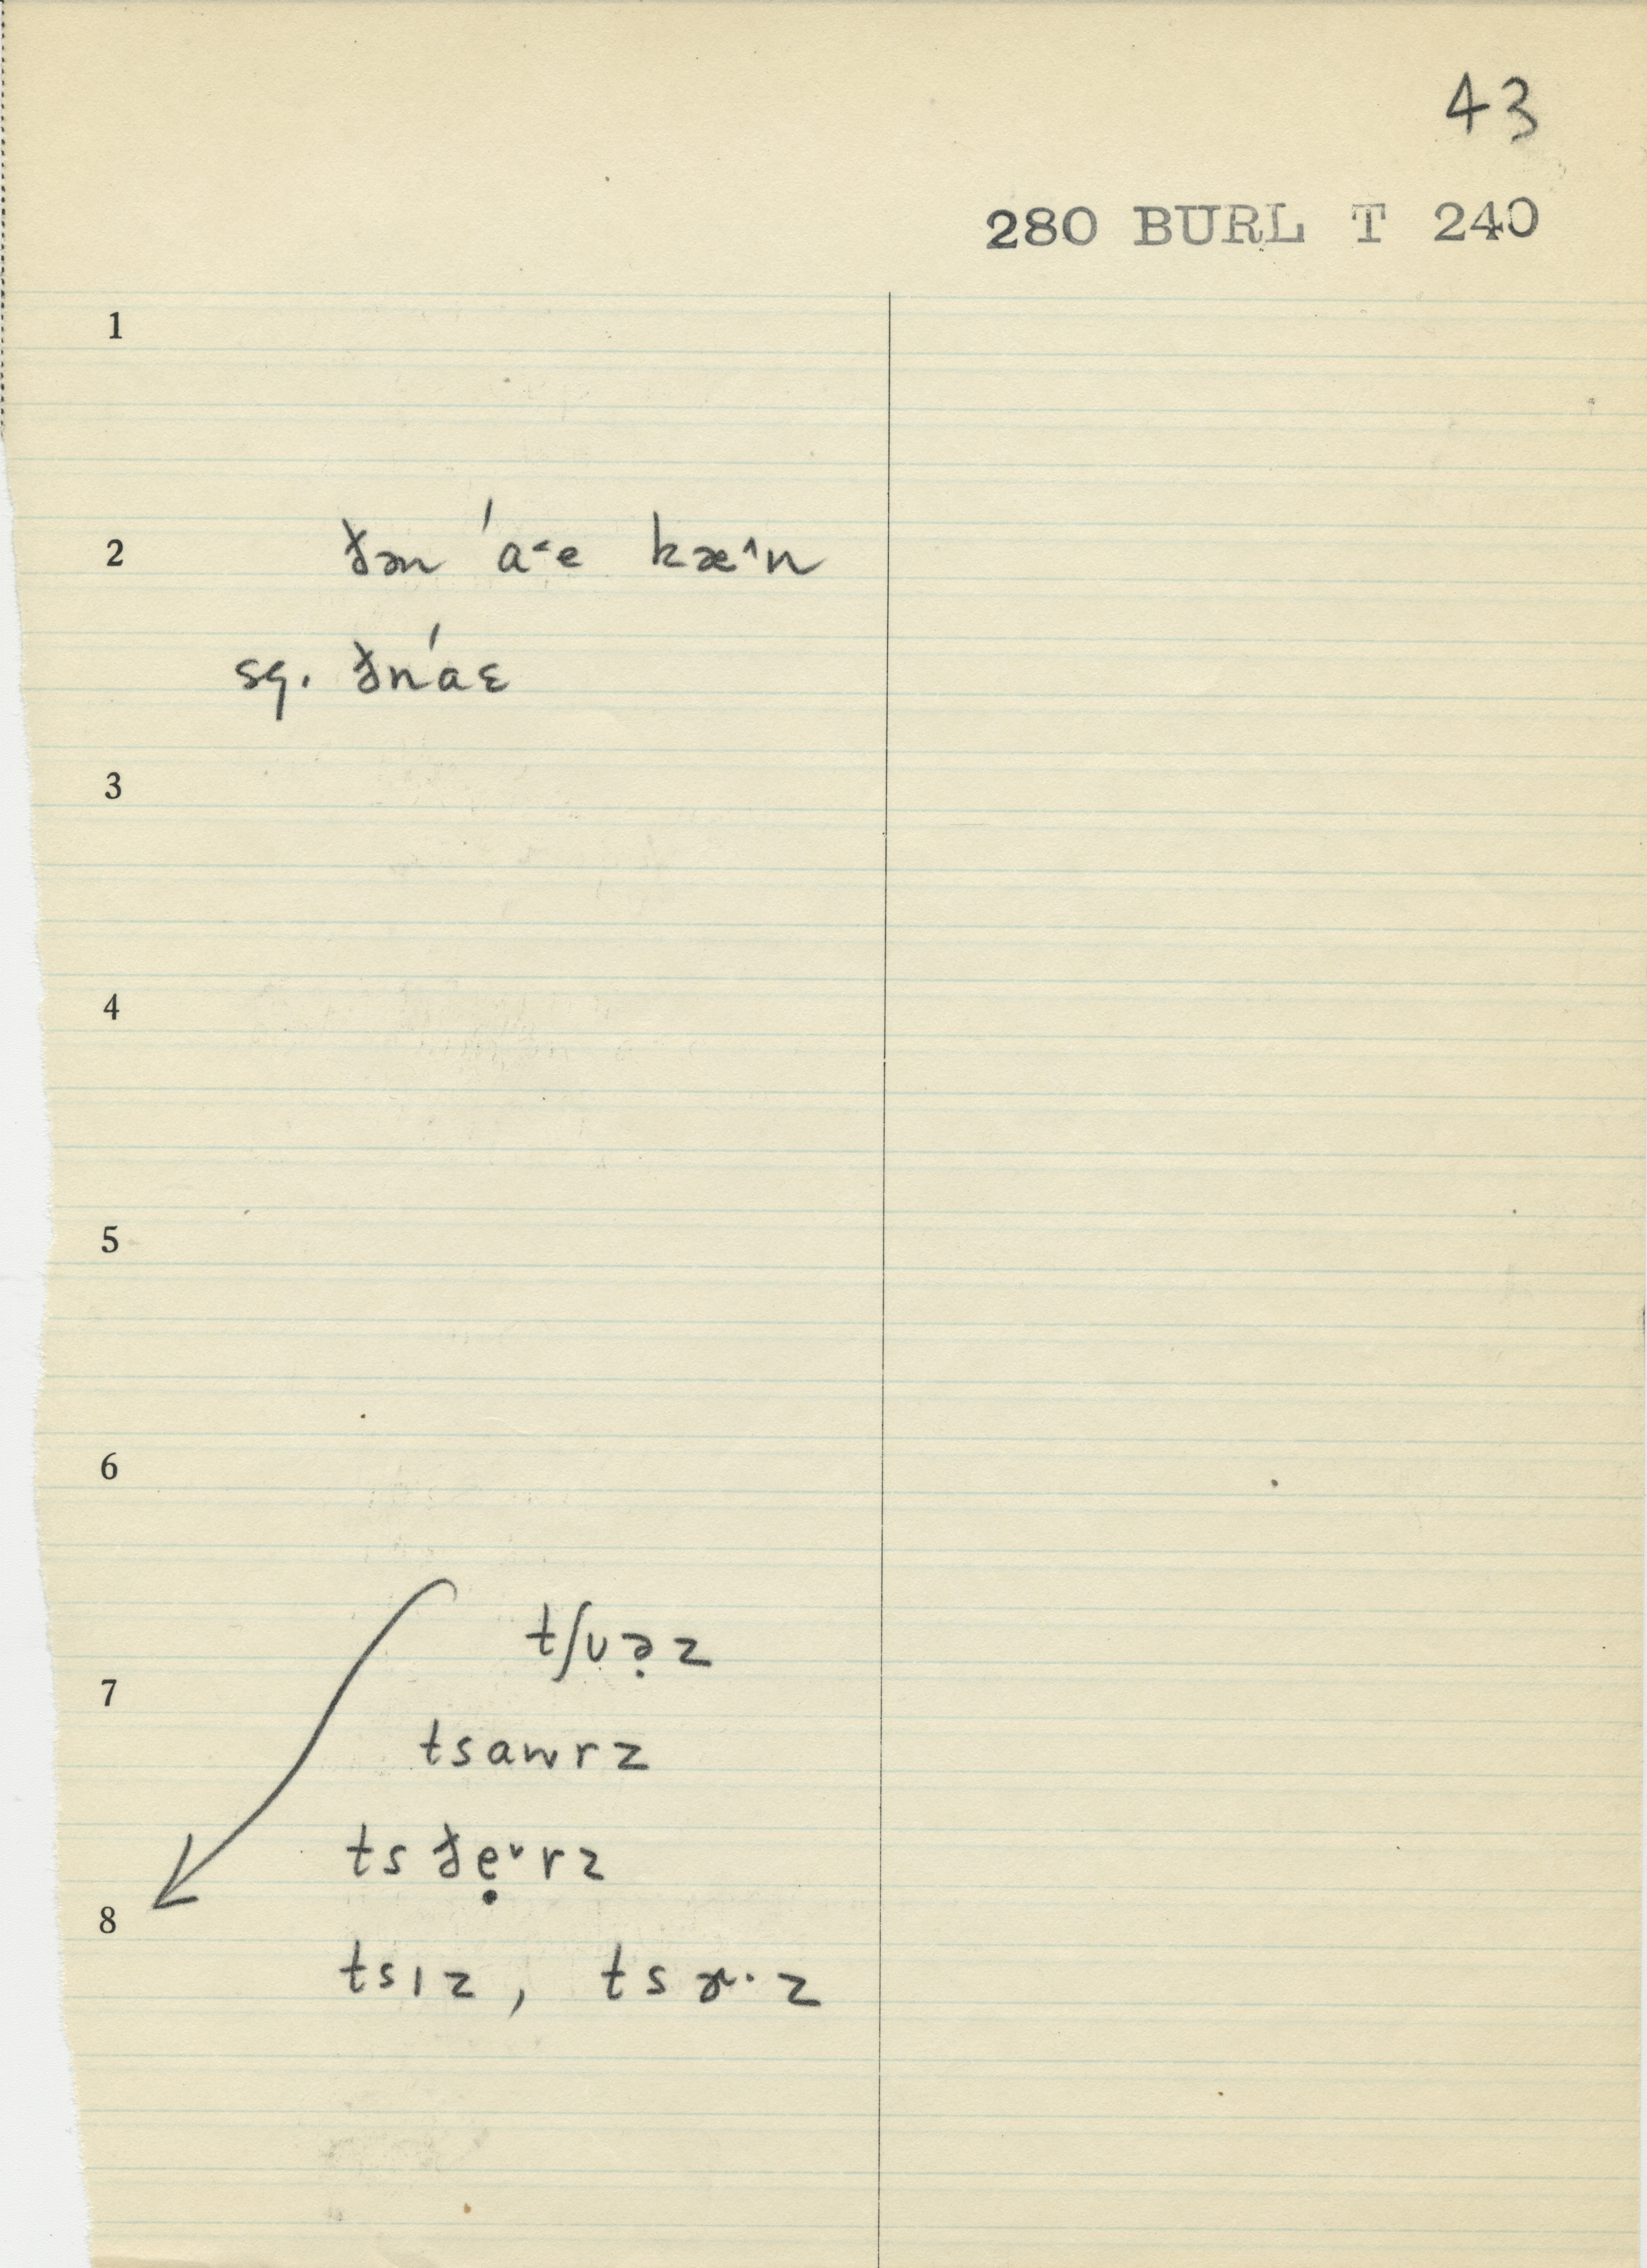 43
280 BURL T 240
1
2 ðən ˈa˂e kæ^n
sg. ðnˈaɛ
3
4
5
6
tʃʋə̣z
7
tsawrz
ts ðẹ˅rz
8
tsɪz, tsɚ·z